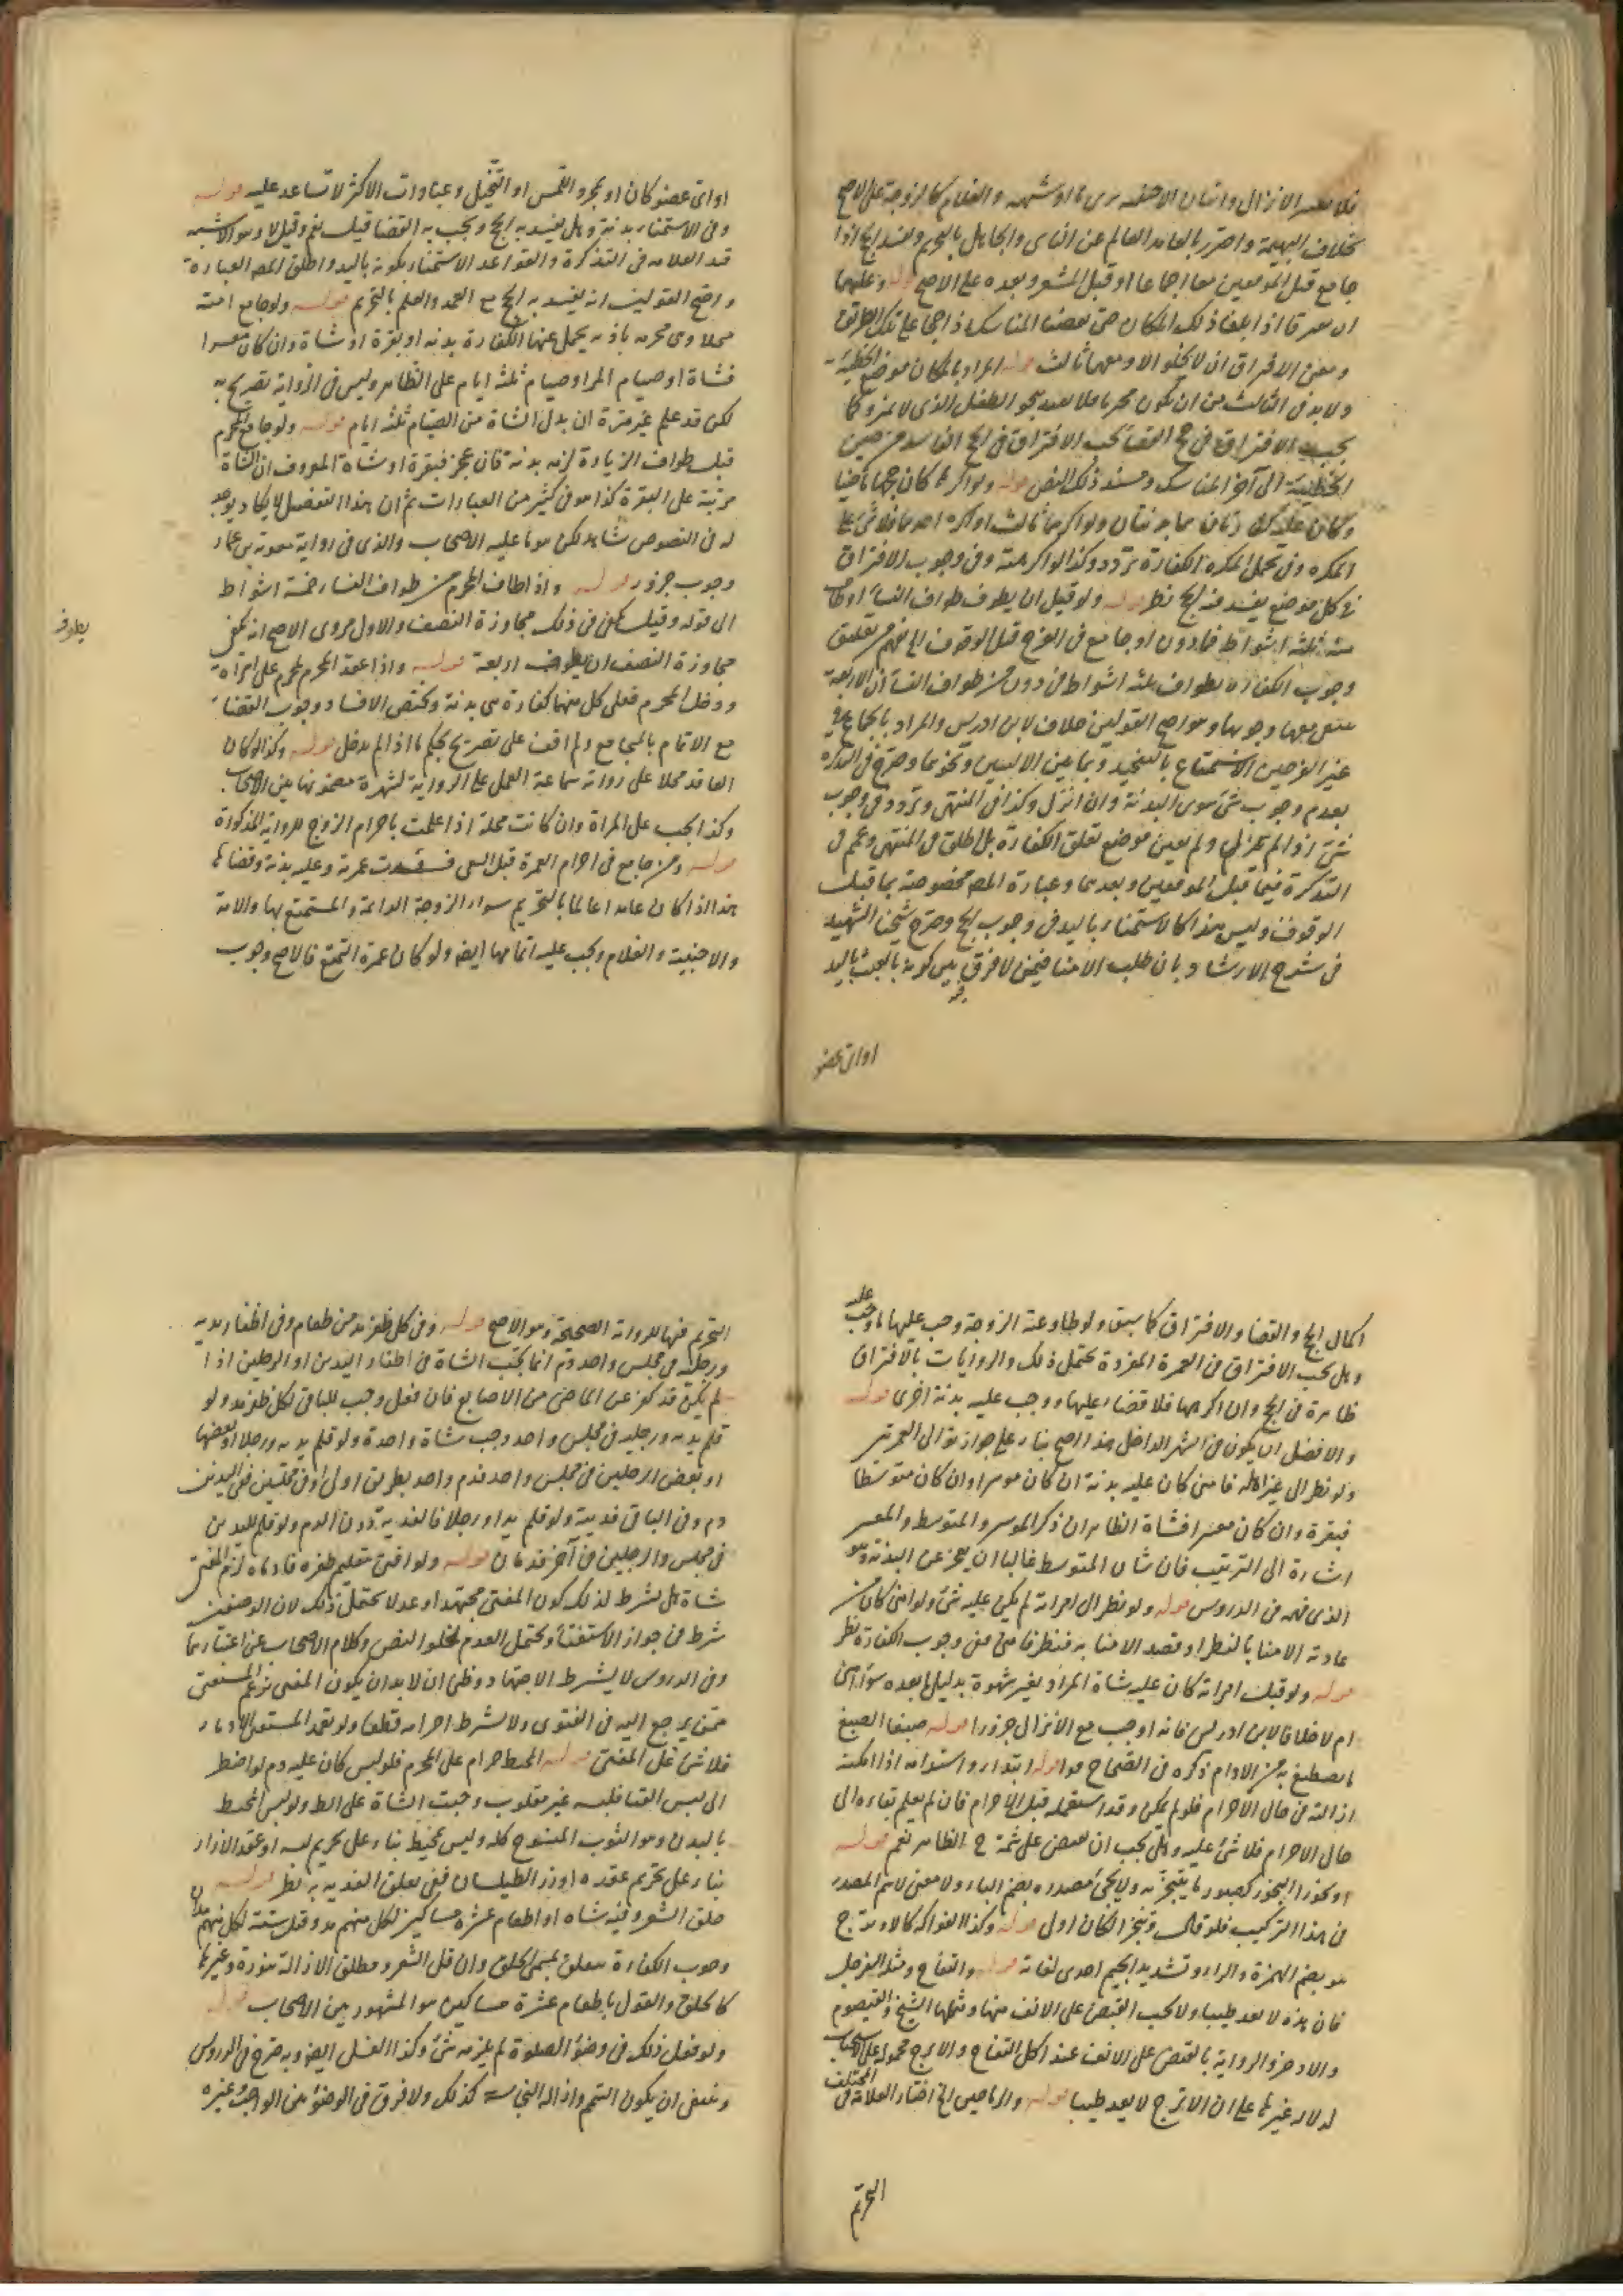 فلا يعتبر الانزال واتيان الاجنبية بزنا او شبهة والغلام كالزوجة على الاصح
بخلاف البهيمة واحترز بالعامد العالم عن الناسي والجاهل بالتحريم ويفسد الحج اذا
جامع قبل الموقفين معا اجماعا او قبل المشعر وبعده على الاصح قوله وعليهما
ان يفترقا اذا بلغا ذلك المكان حتى يقضيا المناسك اذا حجا على تلك الطريق
ومعنى الافتراق ان لا يخلوا الا ومعهما ثالث قوله المراد بالمكان موضع الخطيئة
ولا بد في الثالث من ان يكون محرما فلا يعتد بنحو الطفل الذي لا يميز وكما
يجب الافتراق في حج القضا يجب الافتراق في الحج الفاسد من حين
الخطيئة الى آخر المناسك ومستند ذلك النص قوله ولو اكرهها كان حجها ماضيا
وكان عليه كفارتان هما بدنتان ولو اكرهها ثالث او اكره احدهما فلا شئ على
المكره وفي تحمل المكره الكفارة تردد وكذا لو اكرهته وفي وجوب الافتراق
في كل موضع يفسد فيه الحج نظر قوله ولو قبل ان يطوف طواف النساء او طاف
منه ثلثة اشواط فما دون او جامع في الفرج قبل الوقوف الخ يفهم من تعليق
وجوب الكفارة بطواف ثلثة اشواط فما دون من طواف النساء ان الاربعة
ينتفي معها وجوبها وهو اصح القولين خلاف لابن ادريس والمراد بالجماع في
غير الفرجين الاستمتاع بالتفخيذ وبما بين الاليين ونحوهما وصرح في التذكرة
بعدم وجوب شئ سوى البدنة وان انزل وكذا في المنتهى وتردد في وجوب
شئ اذا لم ينزل ولم يعين موضع تعلق الكفارة بل اطلق في المنتهى وعمم في
التذكرة فيما قبل الموقفين وبعدهما وعبارة المص مخصوصة بما قبل
الوقوف وليس هذا كالاستمناء باليد في وجوب الحج وصرح شيخنا الشهيد
في شرح الارشاد بان طلب الامناء فيمنى لا فرق فيه بين كونه بالعبث باليد
او اي عضو
او اي عضو كان او بمجرد اللمس او التخيل وعبارات الاكثر لا تساعد عليه قوله
وفي الاستمناء بدنة وهل يفسد به الحج ويجب به القضا قيل نعم وقيل لا وهو الاشبه
قيد العلامة في التذكرة والقواعد الاستمناء بكونه باليد واطلق المص العبارة
واصح القولين انه يفسد به الحج مع العمد والعلم بالتحريم قوله ولو جامع امته
محلا وهي محرمة باذنه يحمل عنها الكفارة بدنة او بقرة او شاة وان كان معسرا
فشاة او صيام المراد صيام ثلثة ايام على الظاهر وليس في الرواية تصريح به
لكن قد علم غير مرة ان بدل الشاة من الصيام ثلثة ايام قوله ولو جامع المحرم
قبل طواف الزيارة لزمه بدنة فان عجز فبقرة او شاة المعروف ان الشاة
مرتبة على البقرة كذا هو في كثير من العبارات ثم ان هذا التفصيل لا يكاد يوجد
له في النصوص شاهد لكن هو ما عليه الاصحاب والذي في رواية معوية بن عمار
وجوب جزور قوله واذا طاف المحرم من طواف النساء خمسة اشواط
الى قوله وقيل يكفي في ذلك مجاوزة النصف والاول مروي الاصح انه يكفي
مجاوزة النصف ان يطوف اربعة قوله واذا عقد المحرم لمحرم على امرأة
ودخل المحرم فعلى كل منهما كفارة هي بدنة ويختص الافساد ووجوب القضاء
مع الاتمام بالمجامع ولم اقف على تصريح بحكم ما اذا لم يدخل قوله وكذا لو كان
العاقد محلا على رواية سماعة العمل على الرواية لشهرة مضمونها بين الاصحاب
وكذا يجب على المراة وان كانت محلة اذا علمت باحرام الزوج للرواية المذكورة
قوله ومن جامع في احرام العمرة قبل السعي فسدت عمرته وعليه بدنة وقضاؤها
هذا اذا كان عامدا عالما بالتحريم سواء الزوجة الدائمة والمستمتع بها والامة
والاجنبية والغلام ويجب عليه اتمامها ايضا ولو كان عمرة التمتع فالاصح وجوب
يطوف
اكمال الحج والقضا والافتراق كما سبق ولو طاوعته الزوجة وجب عليها ما وجب عليه
وهل يجب الافتراق في العمرة المفردة يحتمل ذلك والروايات بالافتراق
ظاهرة في الحج وان اكرهها فلا قضاء عليها ووجب عليه بدنة اخرى قوله
والافضل ان يكون في الشهر الداخل هذا اصح بناء على جواز توالي العمرتين
ولو نظر الى غير اهله فامنى كان عليه بدنة ان كان موسرا وان كان متوسطا
فبقرة وان كان معسرا فشاة الظاهر ان ذكر الموسر والمتوسط والمعسر
اشارة الى الترتيب فان شان المتوسط غالبا ان يعجز عن البدنة وهو
الذي فهمه في الدروس قوله ولو نظر الى امراته لم يكن عليه شئ ولو امنى كان من
عادته الامنا بالنظر او قصد الامنا به فنظر فامنى ففي وجوب الكفارة نظر
قوله ولو قبل امراته كان عليه شاة المراد بغير شهوة بدليل ما بعده سواء امنى
ام لا خلافا لابن ادريس فانه اوجب مع الانزال جزورا قوله صبغا الصبغ
ما يصطبغ به من الادام ذكره في الصحاح قوله ابتداء واستدامة اذا امكنه
ازالته في حال الاحرام فلو لم يمكن وقد استعمله قبل الاحرام فان لم يعلم بقاءه الى
حال الاحرام فلا شئ عليه وهل يجب ان يقبض على شمه ح الظاهر نعم قوله
او بخورا البخور كصبور ما يتبخر به ولا يجئ مصدره بضم الباء ولا معنى لاسم المصدر
في هذا التركيب فلو قال وتبخرا لكان اولى قوله وكذا الفواكه كالاترج
هو بضم الهمزة والراء وتشديد الجيم احدى لغاته قوله والتفاح ومثله السفرجل
فان هذه لا تعد طيبا ولا يجب القبض على الانف منها ومثلها الشيخ والقيصوم
والاذخر والرواية بالقبض على الانف عند اكل التفاح والاترج محمولة على الاستحباب
لدلالة غيرها على ان الاترج لا يعد طيبا قوله والرياحين الخ اختار العلامة في المختلف
التحريم
التحريم فيها للرواية الصحيحة وهو الاصح قوله وفي كل ظفر مد من طعام وفي اظفار يديه
ورجليه في مجلس واحد دم انما يجب الشاة في اظفار اليدين او الرجلين اذا
لم يكن قد كفر عن الماضي من الاصابع فان فعل وجب للباقي لكل ظفر مد ولو
قلم يديه ورجليه في مجلس واحد وجب شاة واحدة ولو قلم يديه ورجلا او بعضها
او بعض الرجلين في مجلس واحد فدم واحد بطريق اولى او في مجلسين ففي اليدين
دم وفي الباقي فدية ولو قلم يدا ورجلا فالفدية دون الدم ولو قلم لليدين
في مجلس والرجلين في آخر فدمان قوله ولو افتى بتقليم ظفره فادماه لزم المفتي
شاة هل يشترط لذلك كون المفتي مجتهدا وعدلا يحتمل ذلك لان الوصفين
شرط في جواز الاستفتاء ويحتمل العدم لخلو النص وكلام الاصحاب عن اعتبارهما
وفي الدروس لا يشترط الاجتهاد وظني ان لا بد ان يكون المفتي بزعم المستفتي
ممن يرجع اليه في الفتوى ولا يشترط احرامه قطعا ولو تعمد المستفتي الادماء
فلا شئ على المفتي قوله المخيط حرام على المحرم فلو لبس كان عليه دم ولو اضطر
الى لبس القبا فلبسه غير مقلوب وجبت الشاة على الظ ولو لبس المحيط
بالبدن وهو الثوب المنسوج كله وليس بمخيط بناء على تحريم لبسه او عقد الازار
بناء على تحريم عقده او زر الطيلسان ففي تعلق الفدية به نظر قوله
حلق الشعر وفيه شاة او اطعام عشرة مساكين لكل منهم مد وقيل ستة لكل منهم مدان
وجوب الكفارة متعلق بمسمى الحلق وان قل الشعر ومطلق الازالة بنورة وغيرها
كالحلق والقول باطعام عشرة مساكين هو المشهور بين الاصحاب قوله
ولو فعل ذلك في وضوء الصلوة لم يلزمه شئ وكذا الغسل ايضا وبه صرح في الدروس
وينبغي ان يكون التيمم وازالة النجاسة كذلك ولا فرق في الوضوء بين الواجب وغيره